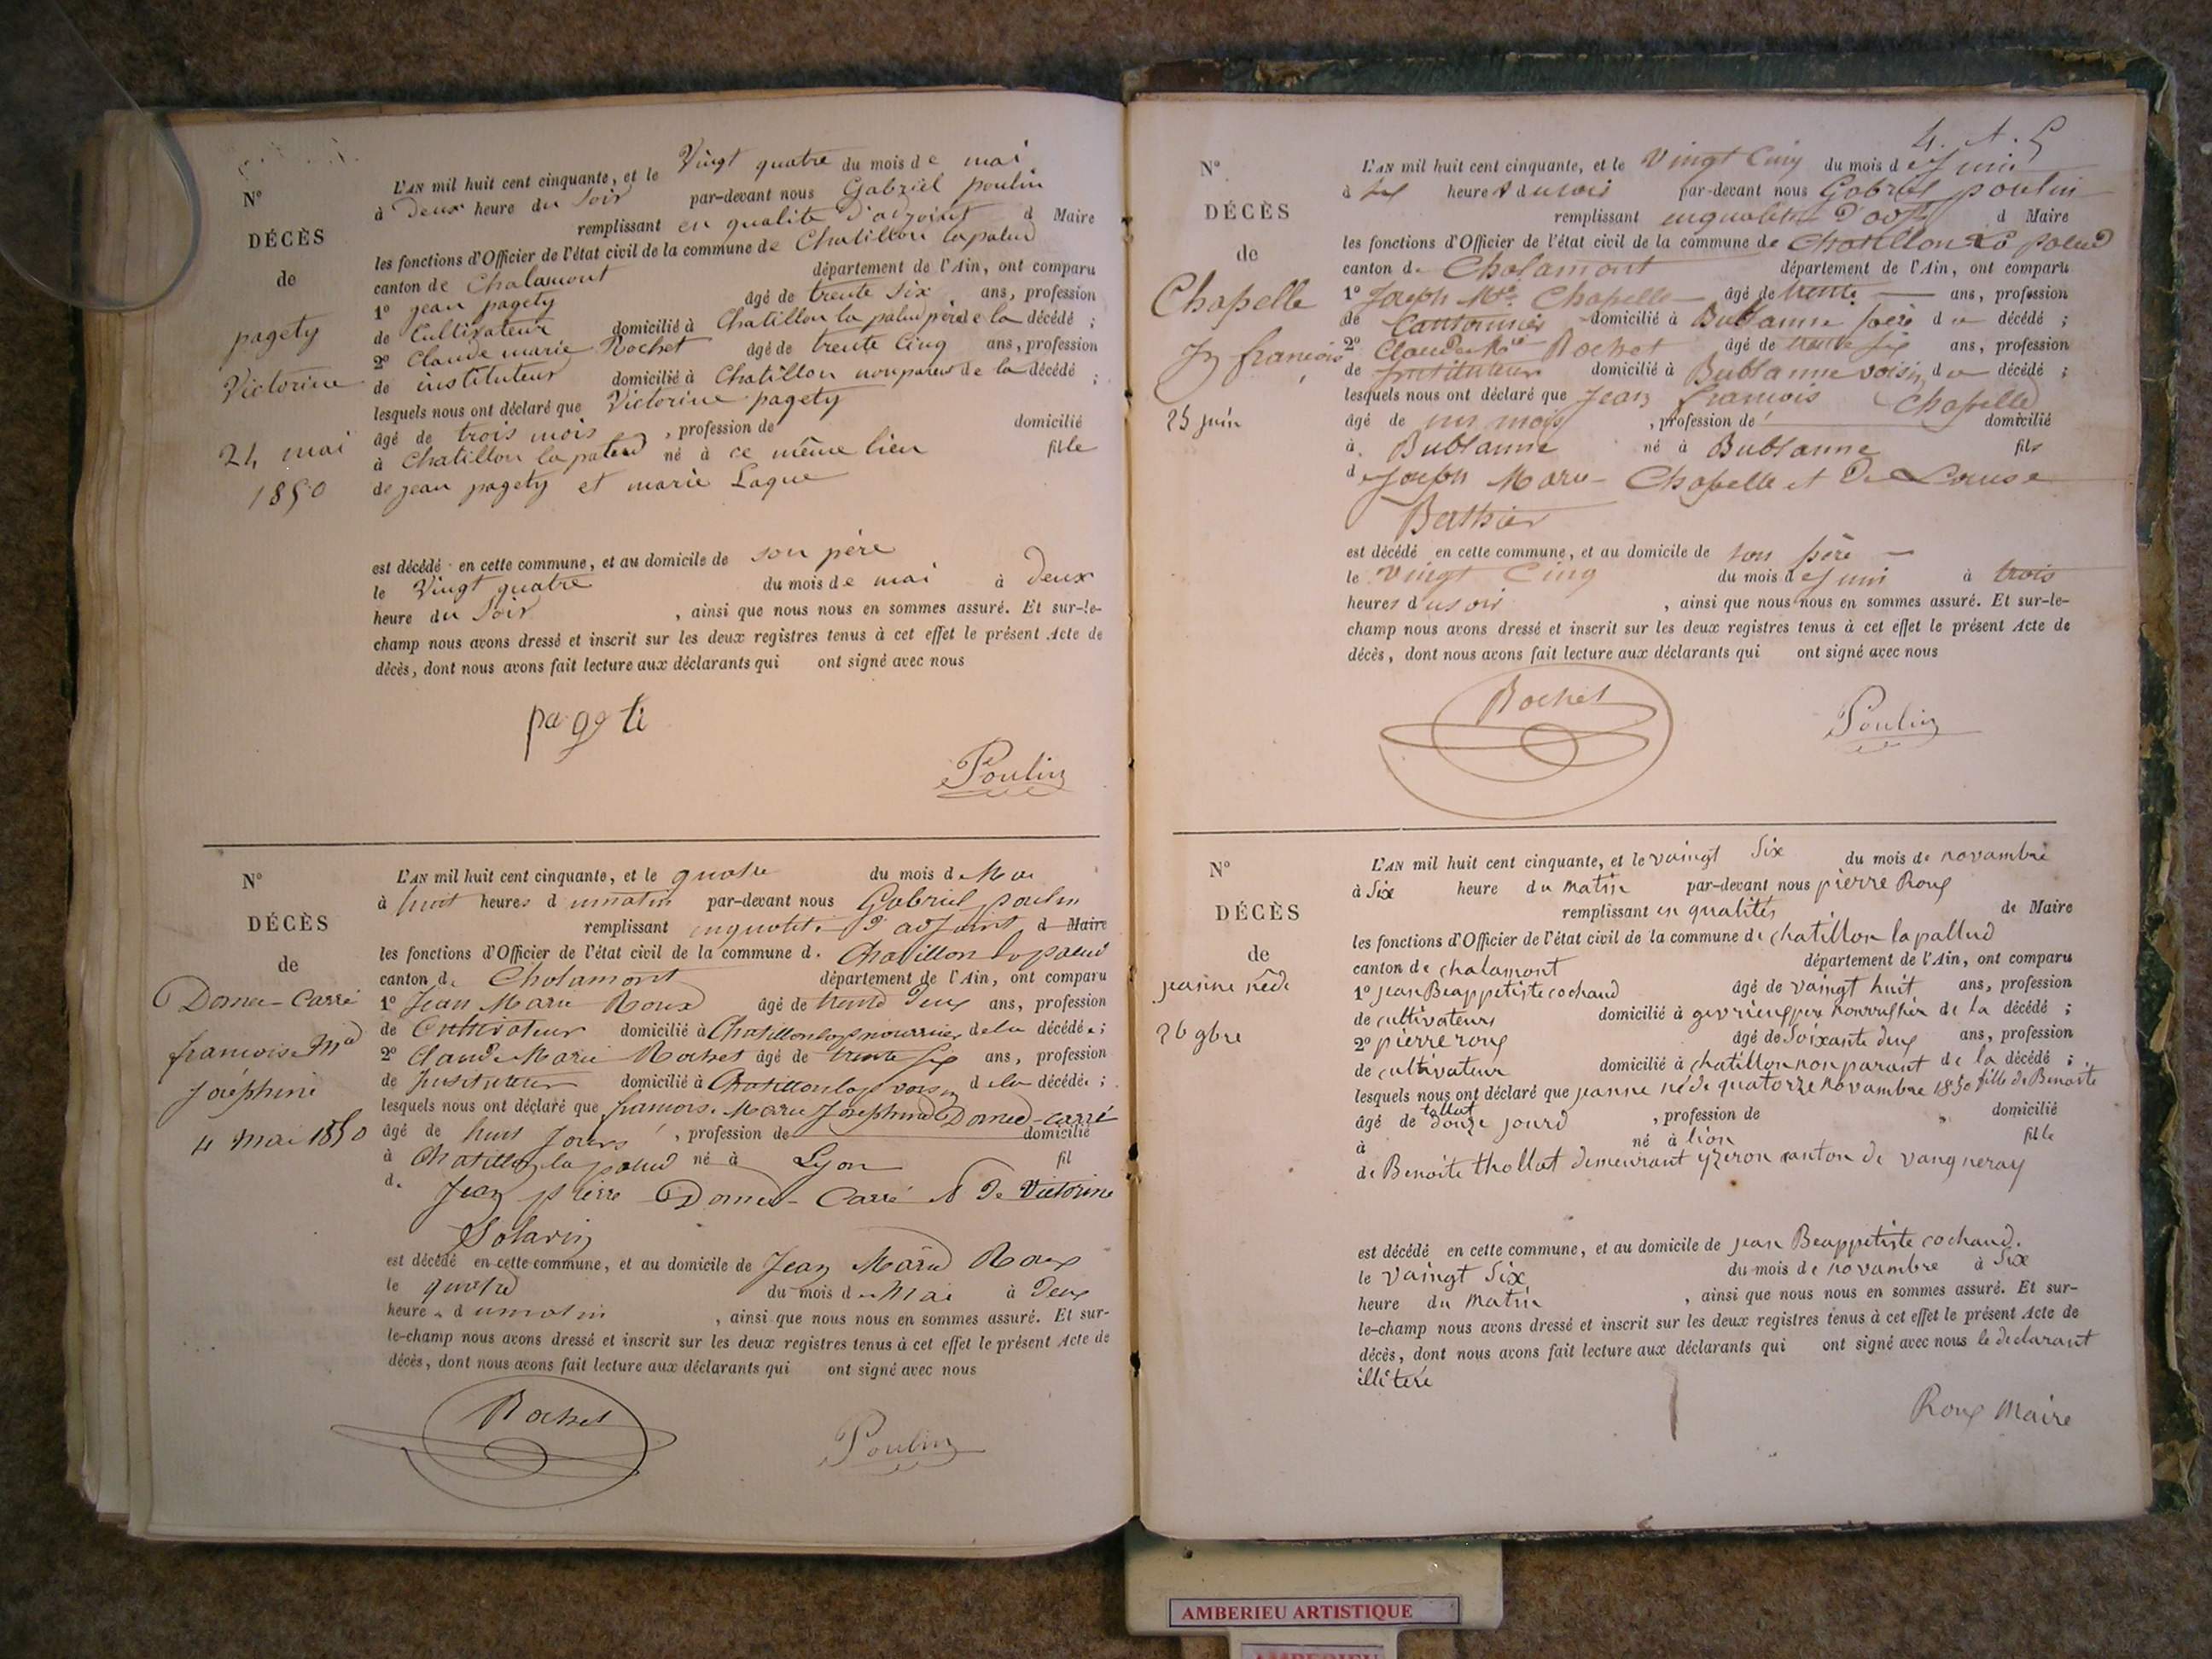 N°
DÉCÈS
de
pagety
Victorine
24 mai
1850
L'AN mil huit cent cinquante, et le Vingt quatre du mois de mai
à Deux heure du Soir par-devant nous Gabriel poulin
remplissant en qualité d'adjoint d Maire
les fonctions d'Officier de l'état civil de la commune de Chatillon lapalud
canton de Chalamont département de l'Ain, ont comparu
1° jean pagety âgé de trente Six ans, profession
de Cultivateur domicilié à Chatillon la palud père de la décédé ;
2° Claude marie Rochet âgé de trente Cinq ans, profession
de instituteur domicilié à Chatillon non parent de la décédé ;
lesquels nous ont déclaré que Victorine pagety
âgé de trois mois , profession de domicilié
à Chatillon la palud né à ce même lieu fille
de jean pagety et marie Laque
est décédé en cette commune, et au domicile de son père
le Vingt quatre du mois de mai à Deux
heure du Soir , ainsi que nous nous en sommes assuré. Et sur-le-
champ nous avons dressé et inscrit sur les deux registres tenus à cet effet le présent Acte de
décès, dont nous avons fait lecture aux déclarants qui ont signé avec nous
pageti
Poulin
N°
DÉCÈS
de
Domer-Carré
francoise Mie
Joséphine
4 mai 1850
L'AN mil huit cent cinquante, et le quatre du mois de Mai
à huit heures du matin par-devant nous Gabriel poulin
remplissant en qualité d'adjoint d Maire
les fonctions d'Officier de l'état civil de la commune d. Chatillon la palud
canton d. Chalamont département de l'Ain, ont comparu
1° Jean Marie Roux âgé de trente Deux ans, profession
de Cultivateur domicilié à Chatillon nourricier de la décédée ;
2° Claude Marie Rochet âgé de trente Six ans, profession
de Instituteur domicilié à Chatillon voisin de la décédée ;
lesquels nous ont déclaré que francoise Marie Joséphine Domer-Carré
âgé de huit Jours , profession de domicilié
à Chatillon la palud né à Lyon fil
d. Jean pierre Domer-Carré et De Victorine
Solarin
est décédé en cette commune, et au domicile de Jean Marie Roux
le quatre du mois de Mai à Deux
heure du matin , ainsi que nous nous en sommes assuré. Et sur-
le-champ nous avons dressé et inscrit sur les deux registres tenus à cet effet le présent Acte de
décès, dont nous avons fait lecture aux déclarants qui ont signé avec nous
Rochet
Poulin
N°
DÉCÈS
de
Chapelle
Jn francois
25 juin
L'AN mil huit cent cinquante, et le Vingt Cinq du mois de Juin
à heures du soir par-devant nous Gabriel poulin
remplissant en qualité d'adjt d Maire
les fonctions d'Officier de l'état civil de la commune de Chatillon La palud
canton de Chalamont département de l'Ain, ont comparu
1° Joseph Mie Chapelle âgé de trente ans, profession
de Cantonnier domicilié à Bublanne père du décédé ;
2° Claude Mie Rochet âgé de trente Six ans, profession
de Instituteur domicilié à Bublanne voisin du décédé ;
lesquels nous ont déclaré que Jean francois Chapelle
âgé de un mois , profession de domicilié
à Bublanne né à Bublanne fils
de Joseph Marie Chapelle et De Louise
Berthier
est décédé en cette commune, et au domicile de son père
le Vingt Cinq du mois de Juin à trois
heures du soir , ainsi que nous nous en sommes assuré. Et sur-le-
champ nous avons dressé et inscrit sur les deux registres tenus à cet effet le présent Acte de
décès, dont nous avons fait lecture aux déclarants qui ont signé avec nous
Rochet
Poulin
N°
DÉCÈS
de
jeanne néde
26 9bre
L'AN mil huit cent cinquante, et le vaingt Six du mois de novambre
à Six heure du matin par-devant nous pierre Roux
remplissant en qualités de Maire
les fonctions d'Officier de l'état civil de la commune de chatillon lapallud
canton de chalamont département de l'Ain, ont comparu
1° jean Beappetiste cochaud âgé de vaingt huit ans, profession
de cultivateurs domicilié à gevrieux père de la décédé ;
2° pierre roux âgé de Soixante deux ans, profession
de cultivateur domicilié à chatillon non parant de la décédé ;
lesquels nous ont déclaré que jeanne néde quatorze novambre 1850 fille de Benoite
tollat
âgé de douze jourd , profession de domicilié
à né à lion fille
de Benoite thollat demeurant yzeron canton de vaugneray
est décédé en cette commune, et au domicile de jean Beappetiste cochaud.
le vaingt Six du mois de novambre à Six
heure du matin , ainsi que nous nous en sommes assuré. Et sur-
le-champ nous avons dressé et inscrit sur les deux registres tenus à cet effet le présent Acte de
décès, dont nous avons fait lecture aux déclarants qui ont signé avec nous le declarant
illiteré
Roux Maire
AMBERIEU ARTISTIQUE
AMBERIEU